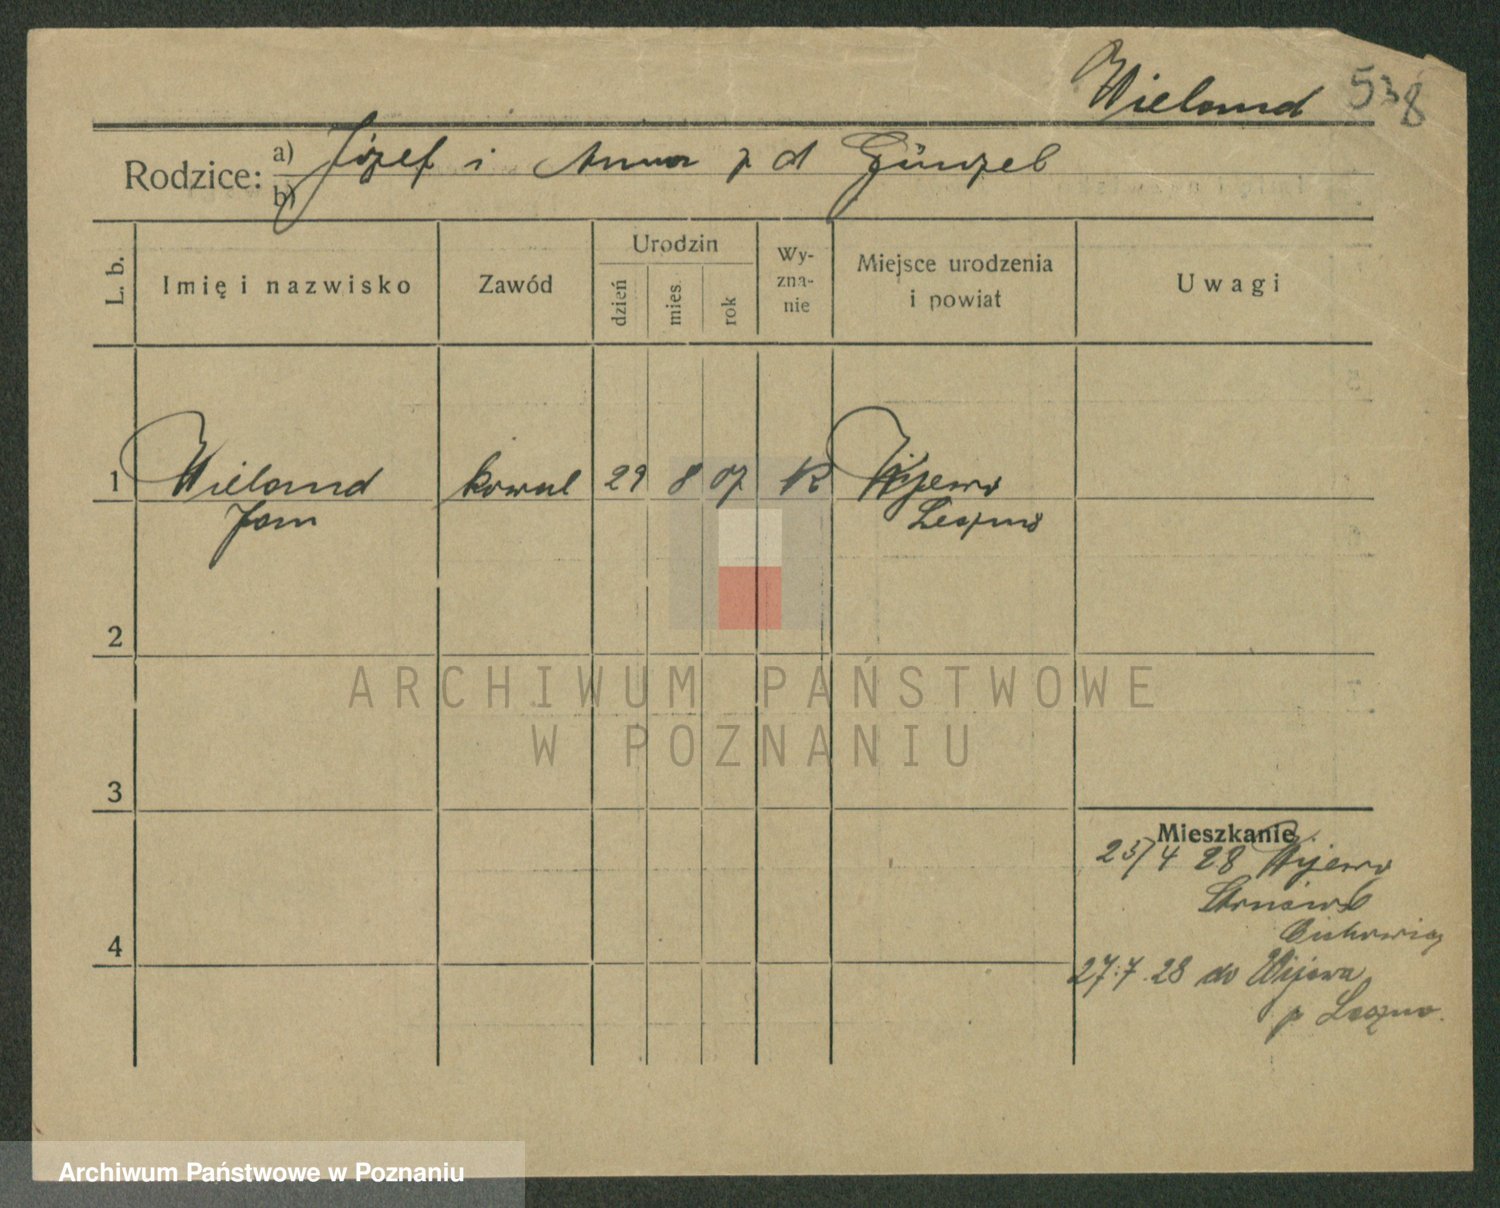 Wieland 538
Rodzice: a) Józef i Anna z d Günzel
b)
L. b.
Imię i nazwisko
Zawód
Urodzin
dzień
mies.
rok
Wy-
zna-
nie
Miejsce urodzenia
i powiat
Uwagi
1 Wieland kowal 29 8 07 K Wijewo
Jan Leszno
2
ARCHIWUM PAŃSTWOWE
W POZNANIU
3
Mieszkanie
25/4 28 Wijewo
4
27.7.28 do Wijewa
p Leszno.
Archiwum Państwowe w Poznaniu